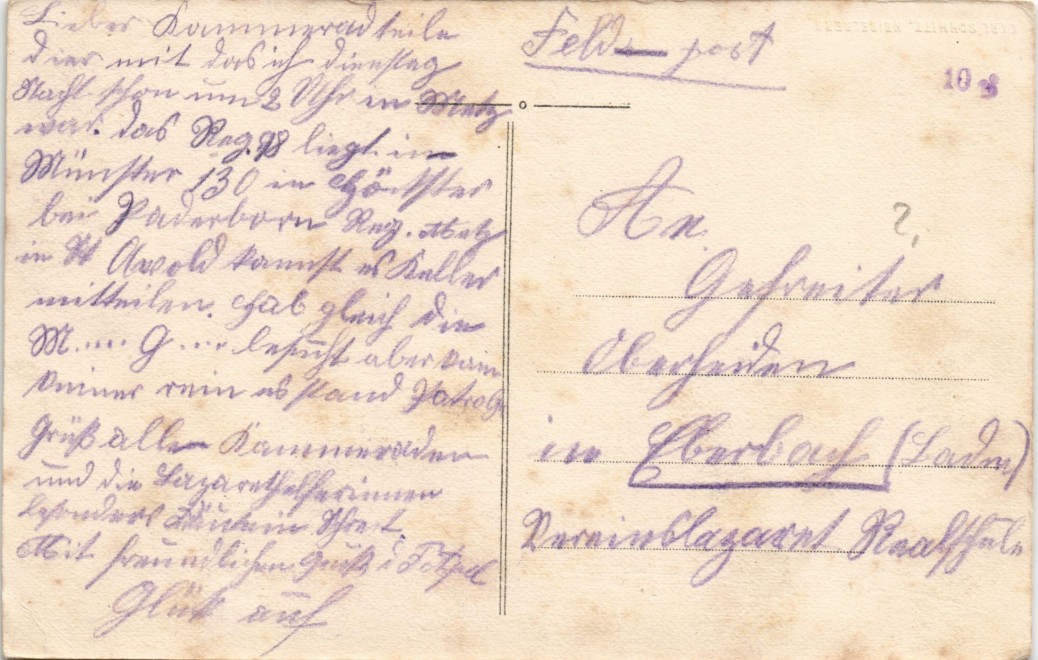 Lieber Kammerad teile
dier mit das ich dienstag
Nacht schon um 2 Uhr in Metz
war. das Reg. 98 liegt in
Münster 130 in Höchster
bei Paderborn Reg. Metz
in St Avold kannst es Keller
mitteilen. Hab gleich die
M.... G.... besucht aber kam
keiner rein es stand
Grüß alle Kammeraden
und die Lazarethelferinnen
besonders Fräulein
Mit freundlichen Gruß
Glück auf
Feld-post
10
An
?
Gefreiter
Oberheiden
in Eberbach (Baden)
Vereinslazaret Realschule